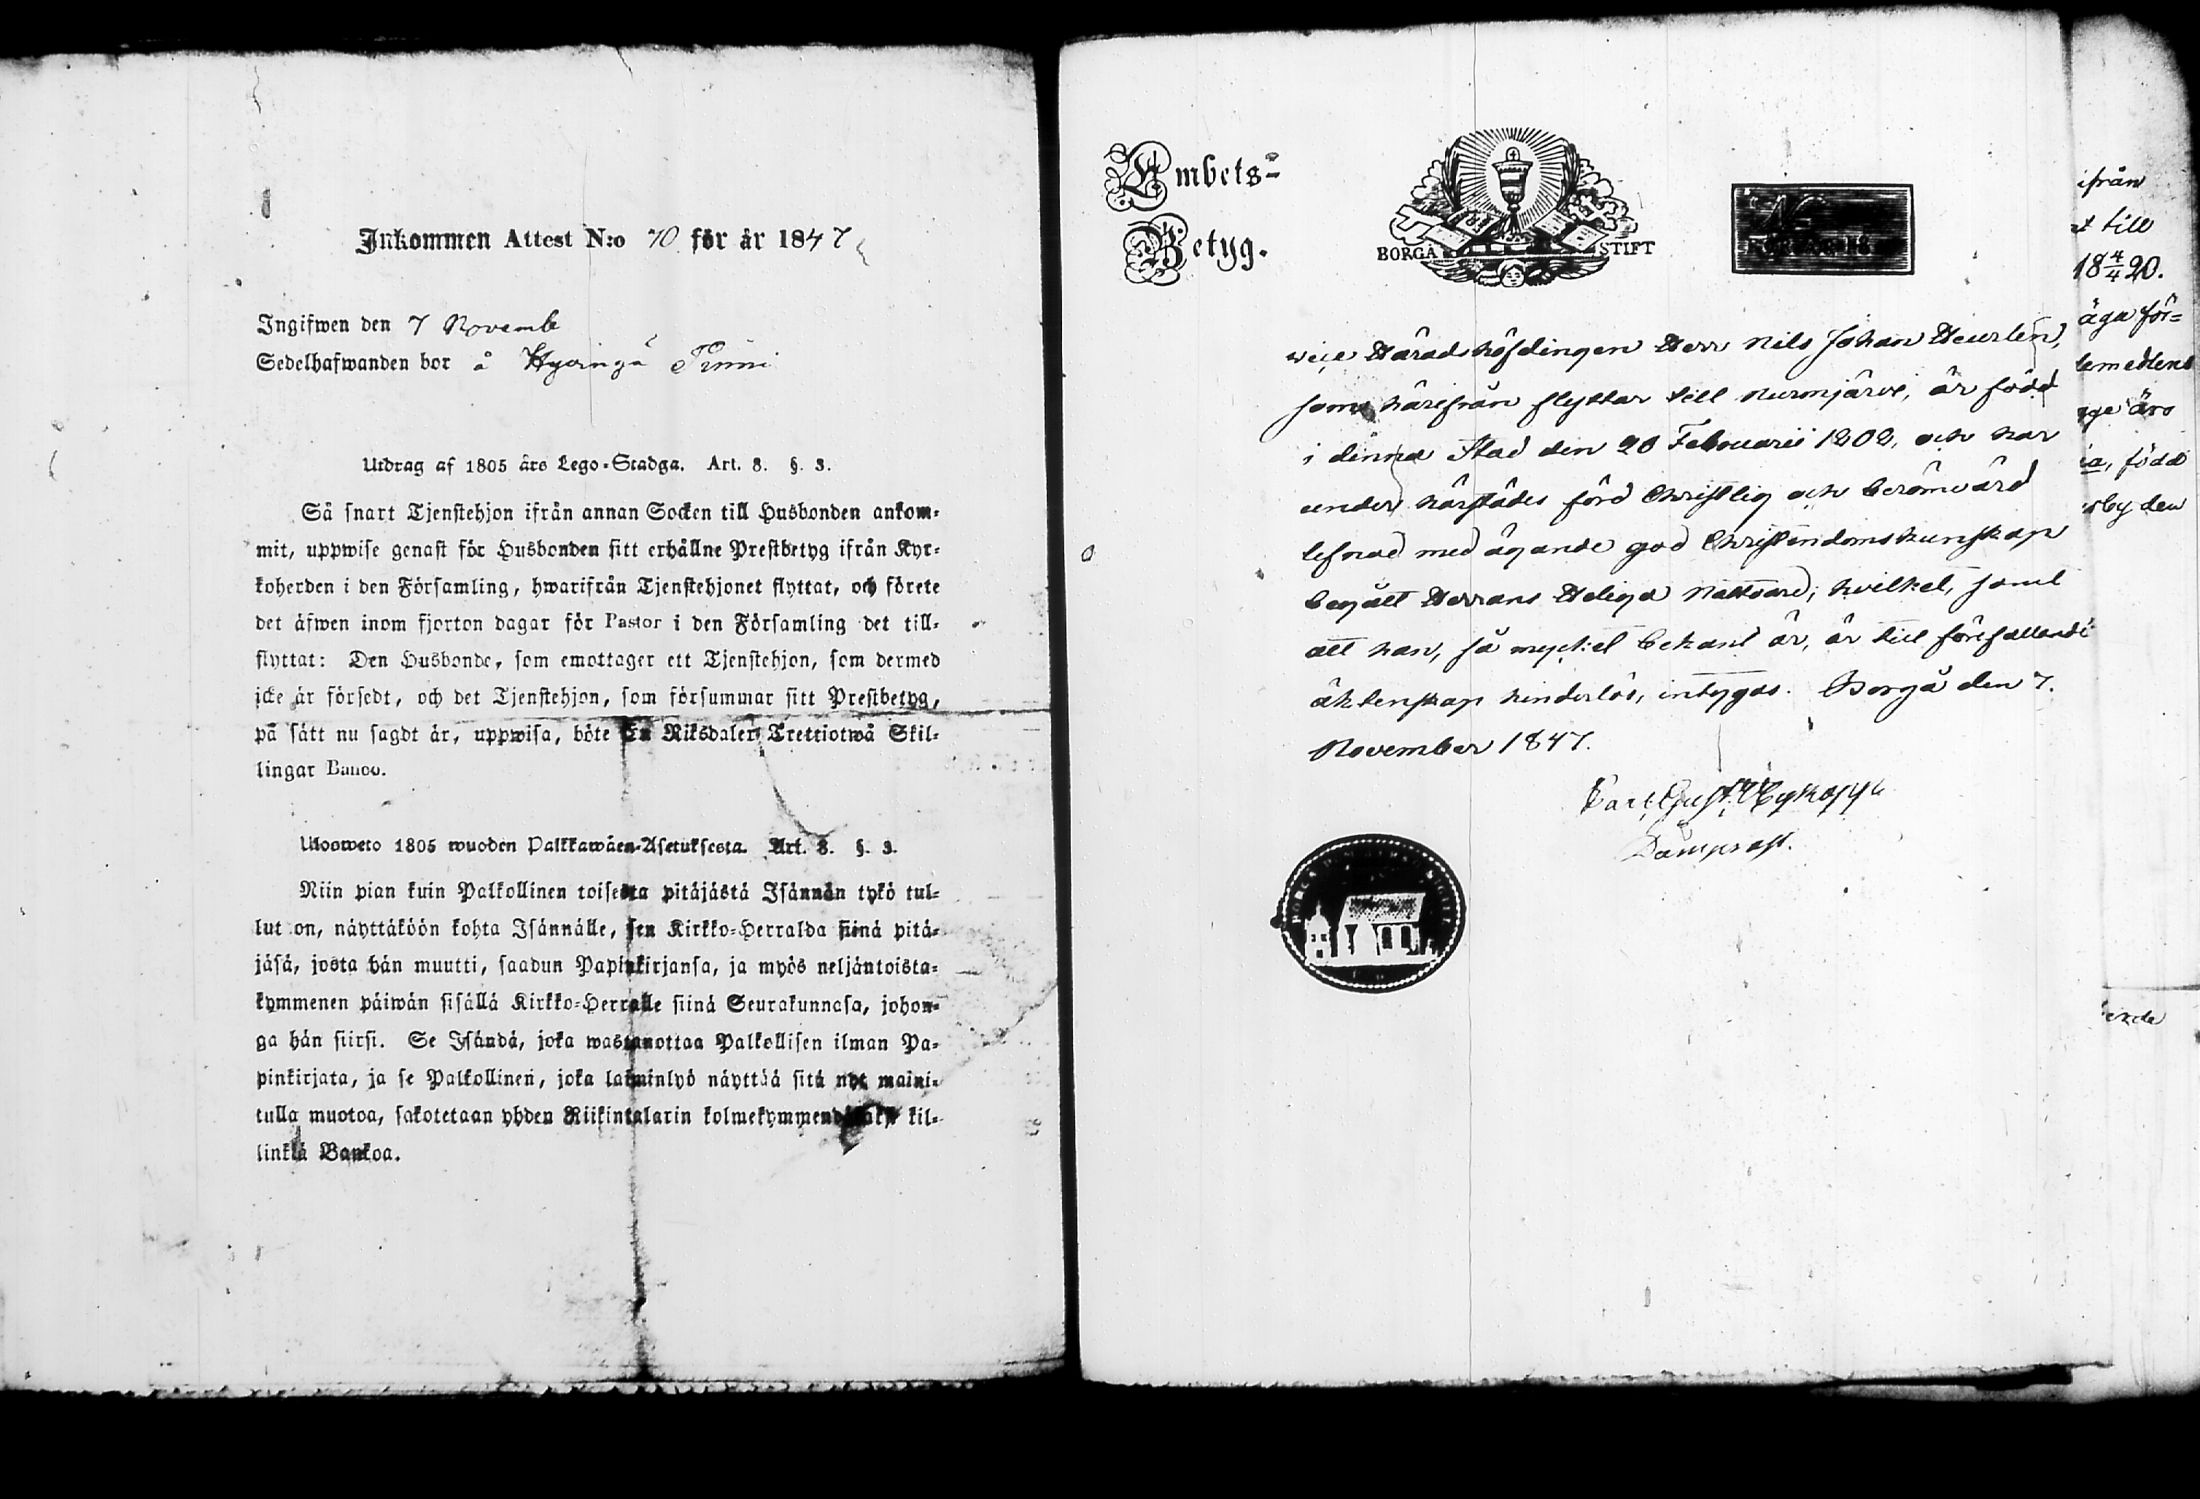 Inkommen Attest N:o 70 för år 1847
Ingifwen den 7 Novemb
Sedelhafwanden bor å Hyvingä
Utdrag af 1805 års Lego-Stadga. Art. 8. §. 3.
Så snart Tjenstehjon ifrån annan Socken till Husbonden ankom-
mit, uppwise genast för Husbonden sitt erhållne Prestbetyg ifrån Kyr-
koherden i den Församling, hwarifrån Tjenstehjonet flyttat, och förete
det äfwen inom fjorton dagar för Pastor i den Församling det till-
flyttat: Den Husbonde, som emottager ett Tjenstehjon, som dermed
icke är försedt, och det Tjenstehjon, som försummar sitt Prestbetyg,
på sätt nu sagdt är, uppwisa, böte En Riksdaler Trettiotwå Skil-
lingar Banco.
Ulosweto 1805 wuoden Palkkawäen-Asetuksesta. Art. 8. §. 3.
Niin pian kuin Palkollinen toisesta pitäjästä Isännän tykö tul-
lut on, näyttäköön kohta Isännälle, sen Kirkko-Herralda siinä pitä-
jäsä, josta hän muutti, saadun Papinkirjansa, ja myös neljäntoista-
kymmenen päiwän sisällä Kirkko-Herralle siinä Seurakunnasa, johon-
ga hän siirsi. Se Isändä, joka wastanottaa Palkollisen ilman Pa-
pinkirjata, ja se Palkollinen, joka laiminlyö näyttää sitä nyt maini-
tulla muotoa, sakotetaan yhden Riikintalarin kolmekymmendäkaksi kil-
linkiä Bankoa.
Embets-
Betyg.
BORGÅ STIFT
Häradshöfdingen Herr Nils Johan Heurlin,
som härifrån flyttar till Nurmijärvi, är född
i denna Stad den 20 Februarii 1802, och har
under härstädes förd Christlig och berömvärd
lefnad med ägande god Christendomskunskap
begått Herrans Heliga Nattvard; hvilket, samt
att han, så mycket bekant är, är till förefallande
äktenskap hinderlös, intygas. Borgå den 7.
November 1847.
Carl Gust.
Domprost.
ifrån
t till
18 4/4 20.
äga för-
lemedlens
äro
ia, född
by den